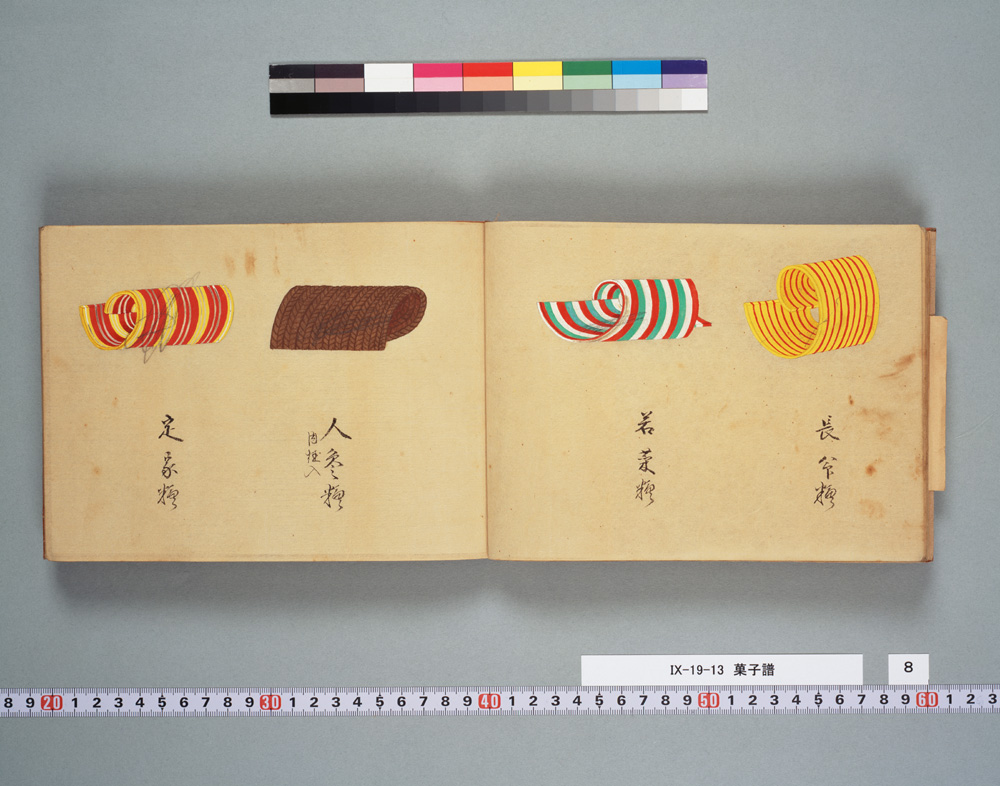 長命糖
若菜糖
人参糖
肉桂入
定家糖
IX-19-13 菓子譜
8
8 9 20 1 2 3 4 5 6 7 8 9 30 1 2 3 4 5 6 7 8 9 40 1 2 3 4 5 6 7 8 9 50 1 2 3 4 5 6 7 8 9 60 1 2 3